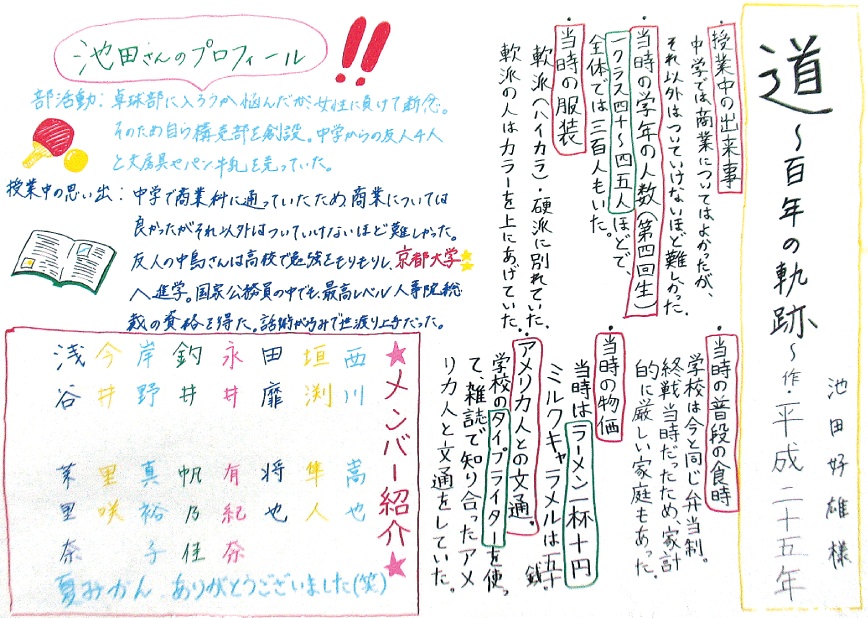 道
〜百年の軌跡〜作・平成二十五年
池田好雄様
・授業中の出来事
中学では商業についてはよかったが、
それ以外はついていけないほど難しかった。
・当時の学年の人数(第四回生)
一クラス四十〜四五人ほどで、
全体では三百人もいた。
・当時の服装
軟派(ハイカラ)・硬派に別れていた。
軟派の人はカラーを上にあげていた。
・当時の普段の食時
学校は今と同じ弁当制。
終戦当時だったため、家計
的に厳しい家庭もあった。
・当時の物価
当時はラーメン一杯十円
ミルクキャラメルは五十銭。
・アメリカ人との文通。
学校のタイプライターを使っ
て、雑誌で知り合ったアメ
リカ人と文通をしていた。
池田さんのプロフィール!!
部活動:卓球部に入ろうか悩んだが女性に負けて断念。
そのため自ら購売部を創設。中学からの友人4人
と文房具やパン牛乳を売っていた。
授業中の思い出:中学で商業科に通っていたため商業については
良かったがそれ以外はついていけないほど難しかった。
友人の中島さんは高校で勉強をもりもりし、京都大学
へ進学。国家公務員の中でも、最高レベル人事院総
裁の資格を得た。話術が巧みで世渡り上手だった。
★メンバー紹介★
西川 嵩也
垣渕 隼人
田靡 将也
永井 有紀奈
釣井 帆乃佳
岸野 真裕子
今井 里咲
浅谷 茉里奈
夏みかん ありがとうございました(笑)